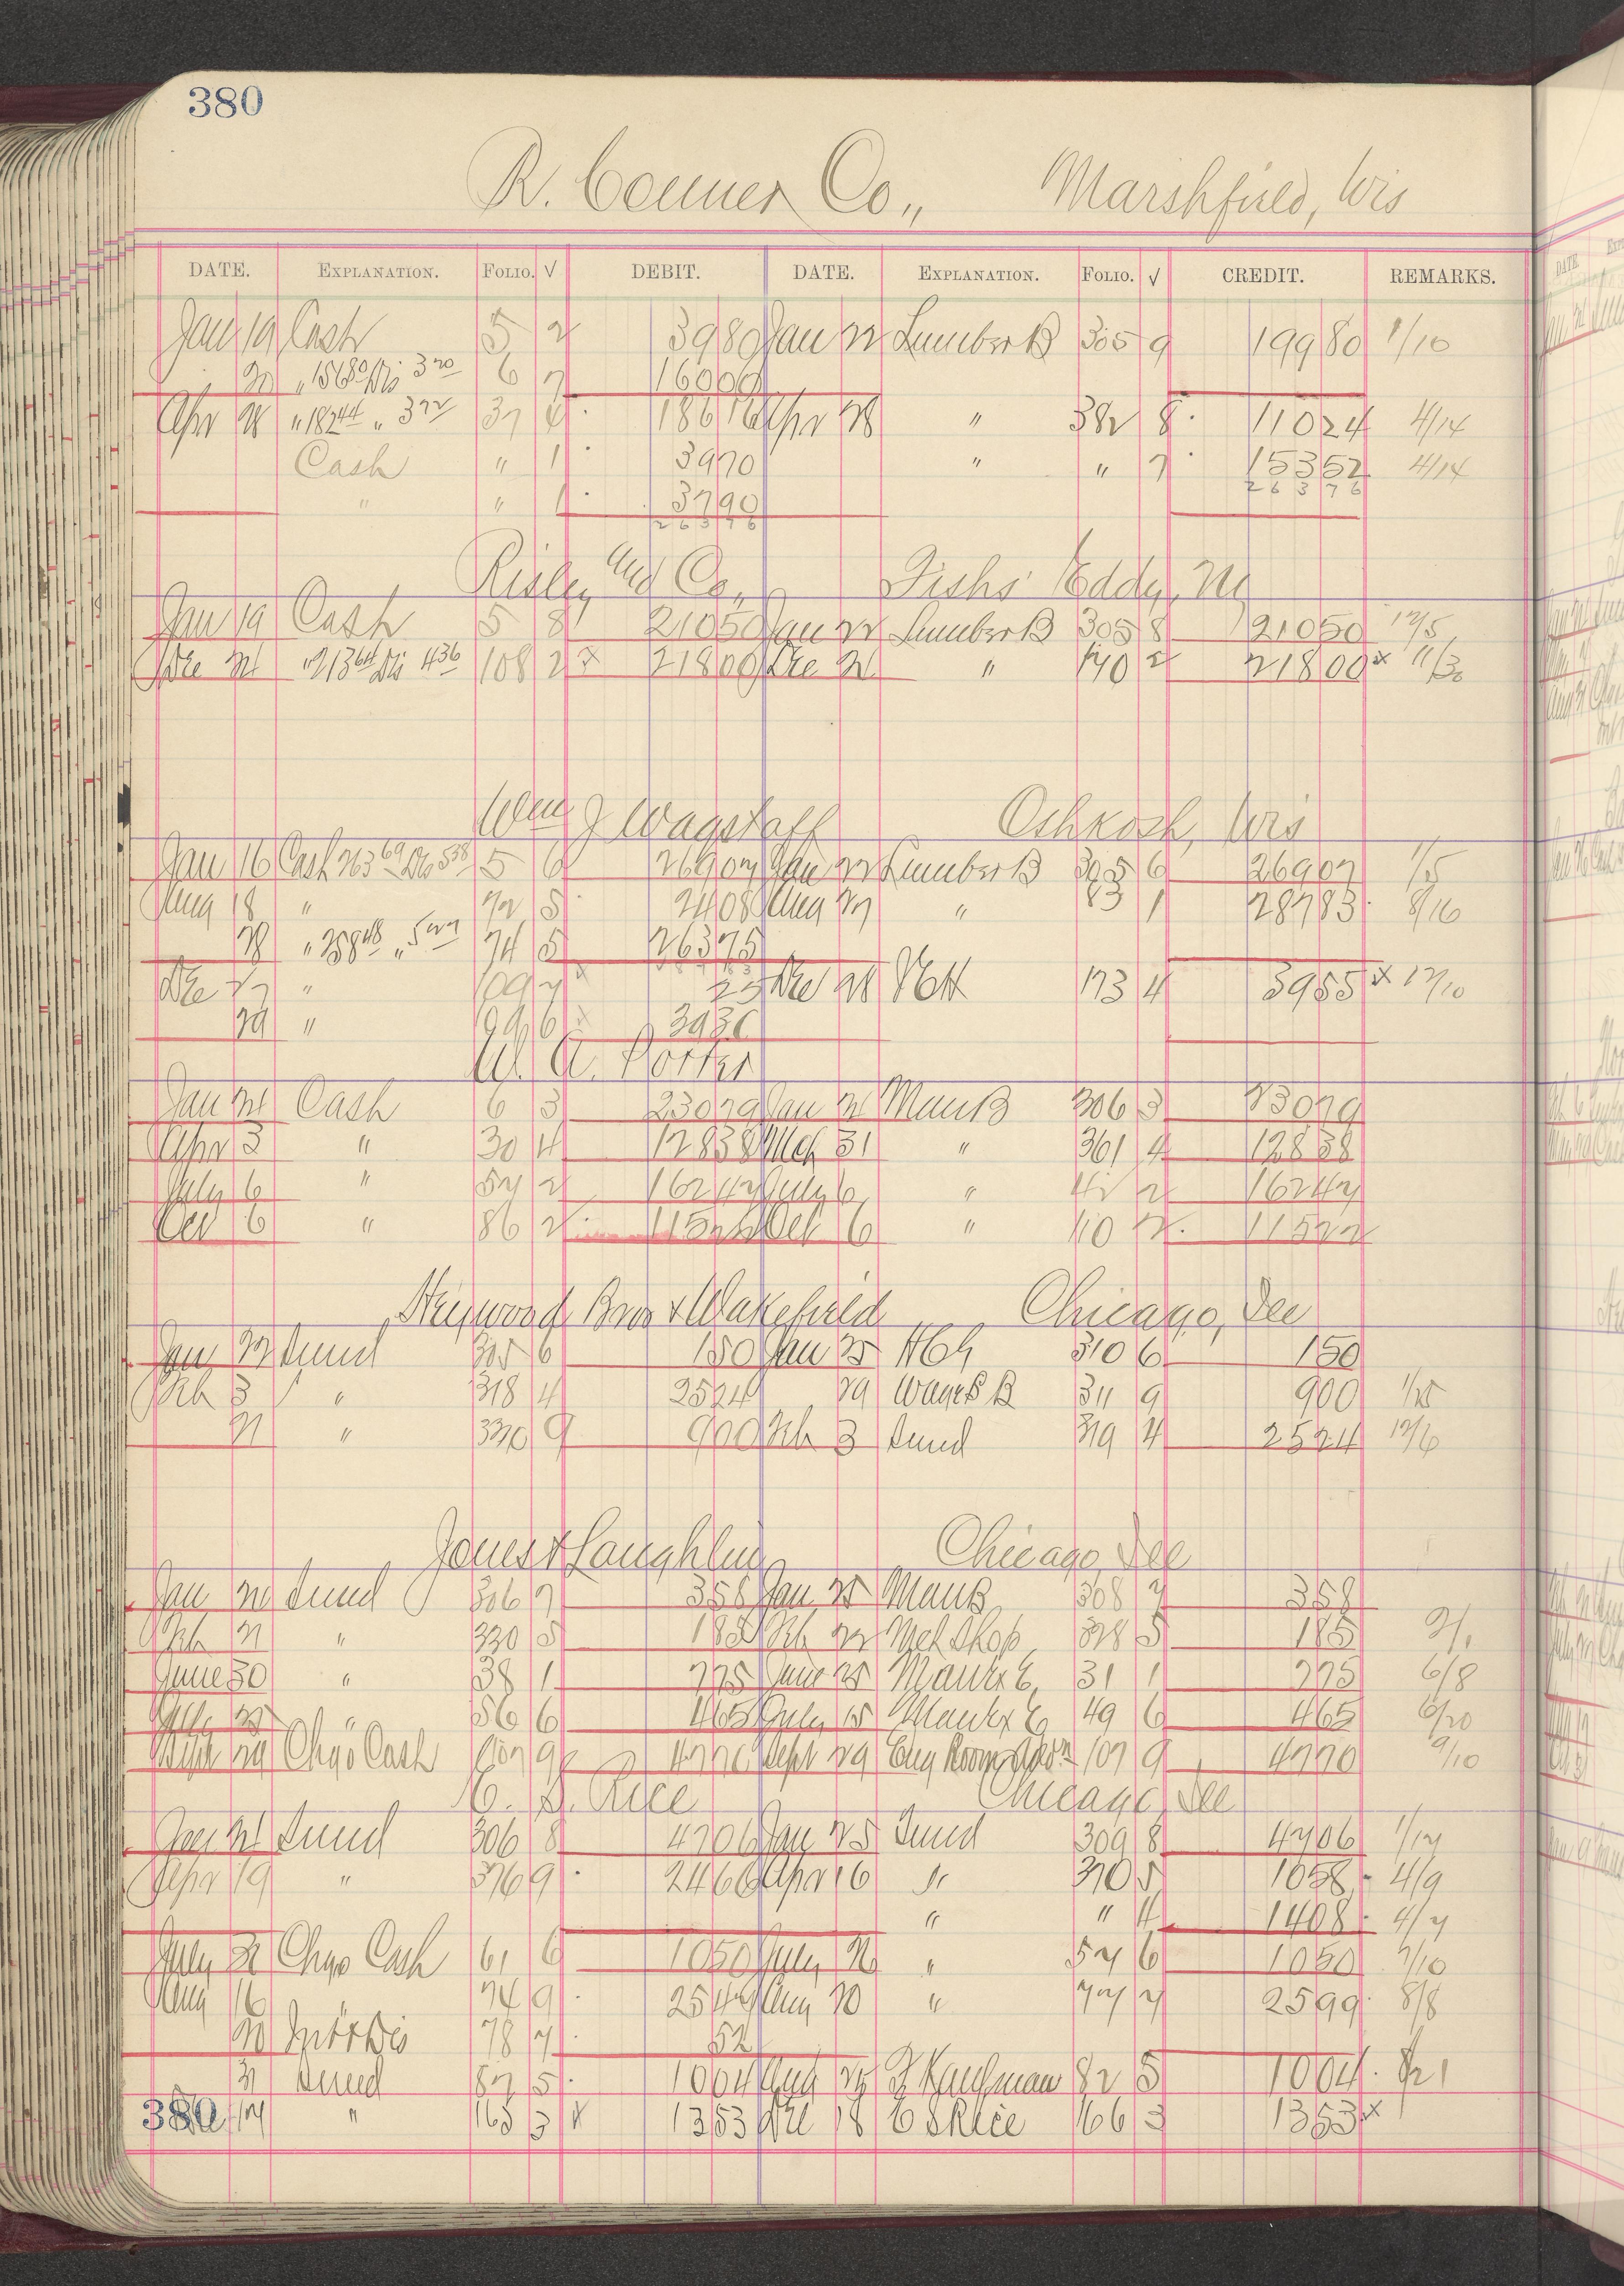 380
R. Connor Co., Marshfield, Wis
DATE. EXPLANATION. FOLIO. √ DEBIT. DATE. EXPLANATION. FOLIO. √ CREDIT. REMARKS.
Jan 19 Cash 5 2 3980 Jan 22 Lumber B 305 9 19980 1/10
20 " 15680 Dis 320 6 7 16000
Apr 28 " 18244 " 372 37 4 18616 Apr 28 " 382 8 11024 4/14
Cash " 1 3970 " " 7 15352 4/14
26376
" " 1 3790
26376
Risley and Co., Fishs Eddy, NY
Jan 19 Cash 5 8 21050 Jan 22 Lumber B 305 8 21050 12/5
Dec 21 " 21364 Dis 436 108 2 x 21800 Dec 21 " 170 2 21800 x 11/30
Wm J Wagstaff Oshkosh, Wis
Jan 16 Cash 26369 Dis 538 5 6 26907 Jan 22 Lumber B 305 6 26907 1/5
Aug 18 " 72 5 2408 Aug 27 " 83 1 28783 8/16
28 " 25848 " 527 74 5 26375
Dec 27 " 109 7 x 25 Dec 28 V C H 173 4 3955 x 12/10
29 " 6 x 3930
W. A. Porter
Jan 21 Cash 6 3 23079 Jan 21 Man B 306 3 23079
Apr 3 " 30 4 12838 Mch 31 " 361 4 12838
July 6 " 57 2 16247 July 6 " 42 2 16247
Oct 6 " 86 2 11522 Oct 6 " 110 2 11522
Heywood Bros & Wakefield Chicago, Ill
Jan 22 Sund 305 6 150 Jan 25 310 6 150
Feb 3 " 318 4 2524 29 Wages B 311 9 900 1/25
21 " 330 9 900 Feb 3 Sund 319 4 2524 12/6
Jones & Laughlin Chicago, Ill
Jan 21 Sund 306 7 358 Jan 25 Man B 308 7 358
Feb 21 " 330 5 185 Feb 22 Mch Shop 328 5 185 2/1
June 30 " 38 1 775 June 25 Manfr E 31 1 775 6/8
July 25 " 56 6 465 July 15 Manfr E 49 6 465 6/20
Sept 29 Chgo Cash 107 9 4770 Sept 29 Eng Room 107 9 4770 9/10
C. S. Rice Chicago, Ill
Jan 21 Sund 306 8 4706 Jan 25 Sund 309 8 4706 1/17
Apr 19 " 376 9 2466 Apr 16 " 370 5 1058 4/9
" " 4 1408 4/7
July 31 Chgo Cash 61 6 1050 July 26 " 57 6 1050 7/10
Aug 16 " 74 9 2549 Aug 20 " 77 7 2599 8/8
20 Int & Dis 78 7 52
31 Sund 87 5 1004 Aug 25 F Kaufman 82 5 1004
380 17 " 165 3 x 1353 Dec 18 C S Rice 166 3 1353 x